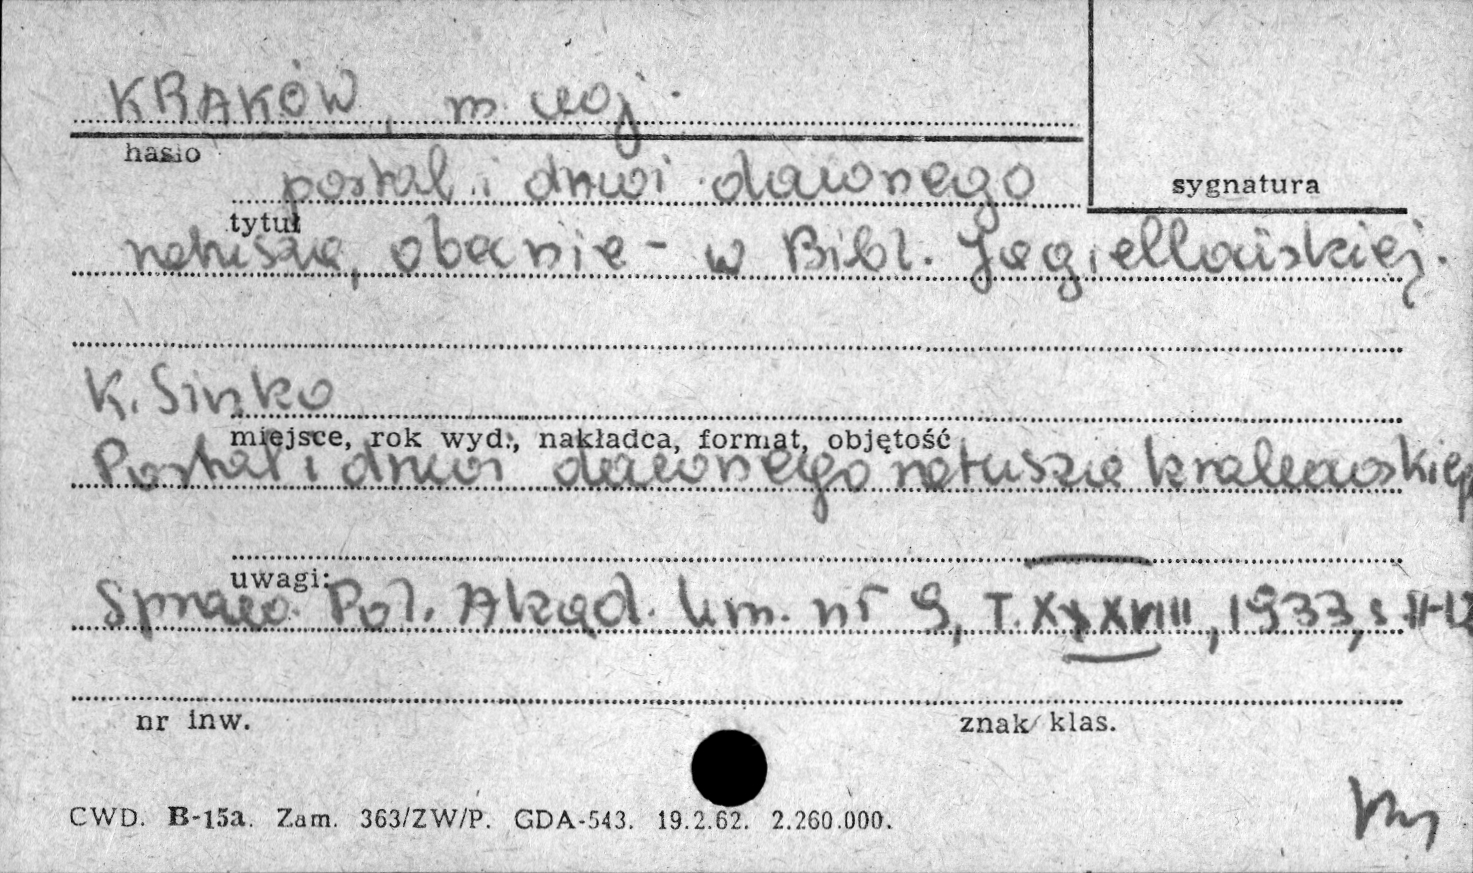 KRAKÓW, m. woj.
hasło
portal i drzwi dawnego
sygnatura
tytuł
ratusza, obecnie - w Bibl. Jagiellońskiej.
K. Sinko
miejsce, rok wyd., nakładca, format, objętość
Portal i drzwi dawnego ratusza krakowskieg
uwagi:
Spraw. Pol. Akad. Um. nr 9, T. XXXVIII, 1933, s. 11-12
nr inw.
znak klas.
CWD. B-15a. Zam. 363/ZW/P. GDA-543. 19.2.62. 2.260.000.